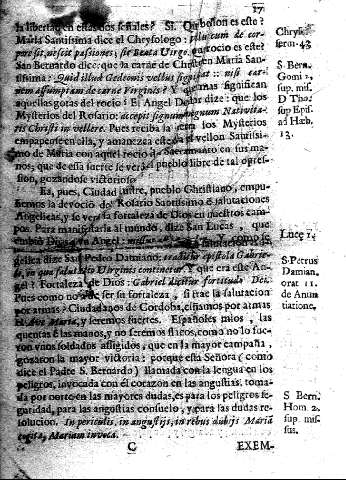 17
la libertad en estas dos señales? Si. Que bellon es este?
Maria Santissima dice el Chrysologo:
porescit, nescit passiones; sic Beata Virgo. rocio es este?
San Bernardo dice: que la carne de Christo en Maria San-
tissima: Quid illud Gedeonis vellus significat:: nisi car-
nem assumptam de carne Virginis? Y que mas significan
aquellas gotas del rocio? El Angel D dize: que los
Mysterios del Rosario: accepit signum Nativita-
tis Christi in vellere. Pues reciba la tierra los Mysterios
empapente en ella, y amanezca esta el vellon Santissi-
mo de Maria con aquel rocio Sacramento en sus ma-
nos, que de esta suerte se verá el pueblo libre de tal opres-
sion, gozandose victorioso.
Ea, pues, Ciudad ilustre, pueblo Christiano, empu-
ñemos la devocio del Rosario Santissimo salutaciones
Angelicas, y se verá la fortaleza de Dios en nuestros cam-
pos. Para manifestarla al mundo, dize San Lucas, que
embió Dios Angel: missus
gelica dize San Pedro Damiano: tradidit epistola Gabrie-
li, in qua salutatio Virginis continetur. Y que era este An-
gel? Fortaleza de Dios: Gabriel dicitur fortitudo Dei.
Pues como no ha de ser su fortaleza, si trae la salutacion
por armas? Ciudadanos de Cordoba, ciñamos por armas
Maria, y seremos fuertes. Españoles mios, las
quentas à las manos, y no seremos flacos, como no lo fue-
ron unos soldados afligidos, que en la mayor campaña,
gozaron la mayor victoria: porque esta Señora (como
dice el Padre S. Bernardo) llamada con la lengua en los
peligros, invocada con el corazon en las angustias, toma-
da por norte en las mayores dudas, es para los peligros se-
guridad, para las angustias consuelo, y para las dudas re-
solucion. In periculis, in angustijs, in rebus dubijs Mariã
cogita, Mariam invoca.
C EXEM-
Chrys.
serm. 43
S Bern.
Gomi 2,
sup. mis.
D Tho2
sup Epist
ad Hæb.
13.
Luce 1,
S. Petrus
Damian.
orat 11.
de Anun
tiatione,
S Bern.
Hom 2,
sup. mis-
sus.